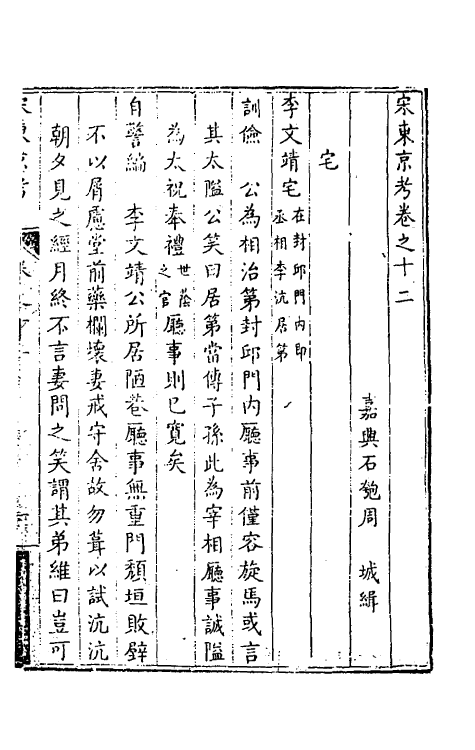 宋東京考卷之十二
嘉興石匏周　城緝
宅
李文靖宅在封邱門內即丞相李沆居第
訓儉　公為相治第封邱門內廳事前僅容旋馬或言
其太隘公笑曰居第當傳子孫此為宰相廳事誠隘
為太祝奉禮世蔭之官廳事則已寬矣
自警編　李文靖公所居陋巷廳事無重門頹垣敗壁
不以屑慮堂前藥欄壞妻戒守舍故勿葺以試沆沆
朝夕見之經月終不言妻問之笑謂其弟維曰豈可